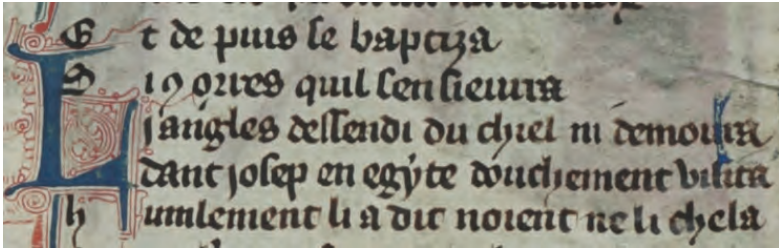 Et de puis le baptiza
Si 9 orres quil sen sieuura
Li angles dessendi du chiel ni demoura
dant josep en egÿte douchement visita
humlement li a dit noient ne li chela